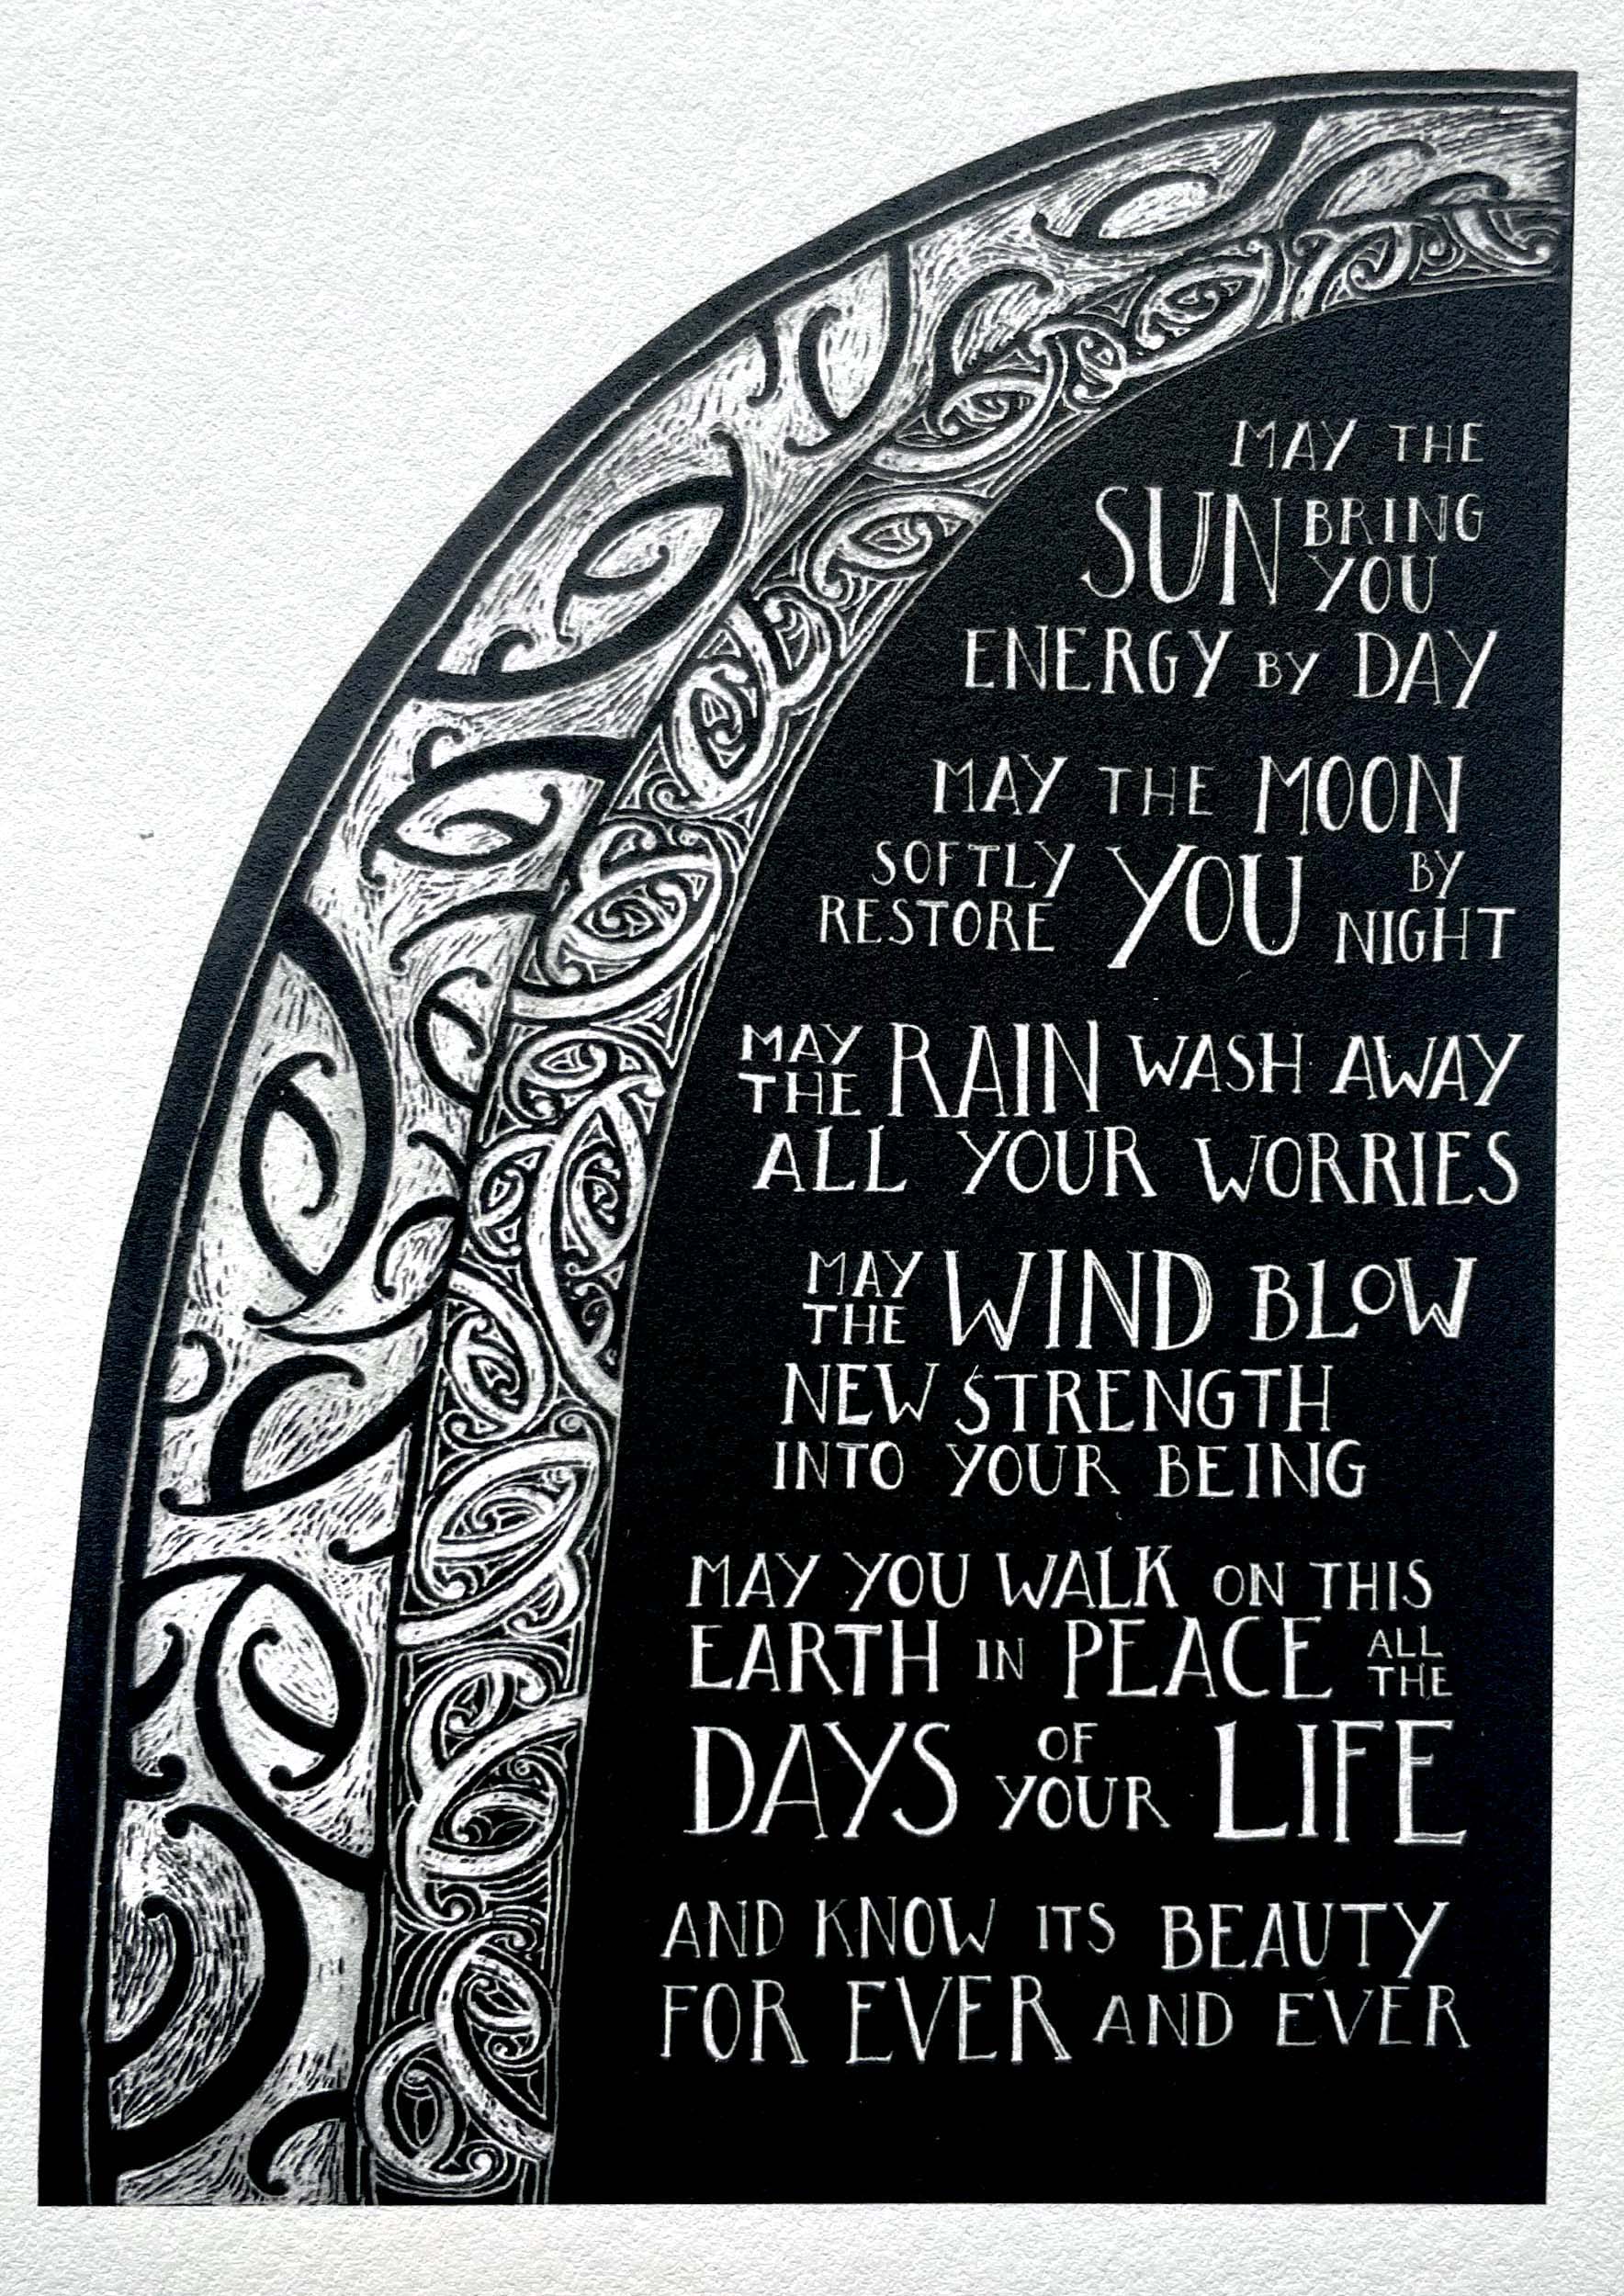 MAY THE
SUN BRING
YOU
ENERGY BY DAY
MAY THE MOON
SOFTLY
RESTORE YOU BY
NIGHT
MAY
THE RAIN WASH AWAY
ALL YOUR WORRIES
MAY
THE WIND BLOW
NEW STRENGTH
INTO YOUR BEING
MAY YOU WALK ON THIS
EARTH IN PEACE ALL
THE
DAYS OF
YOUR LIFE
AND KNOW ITS BEAUTY
FOR EVER AND EVER